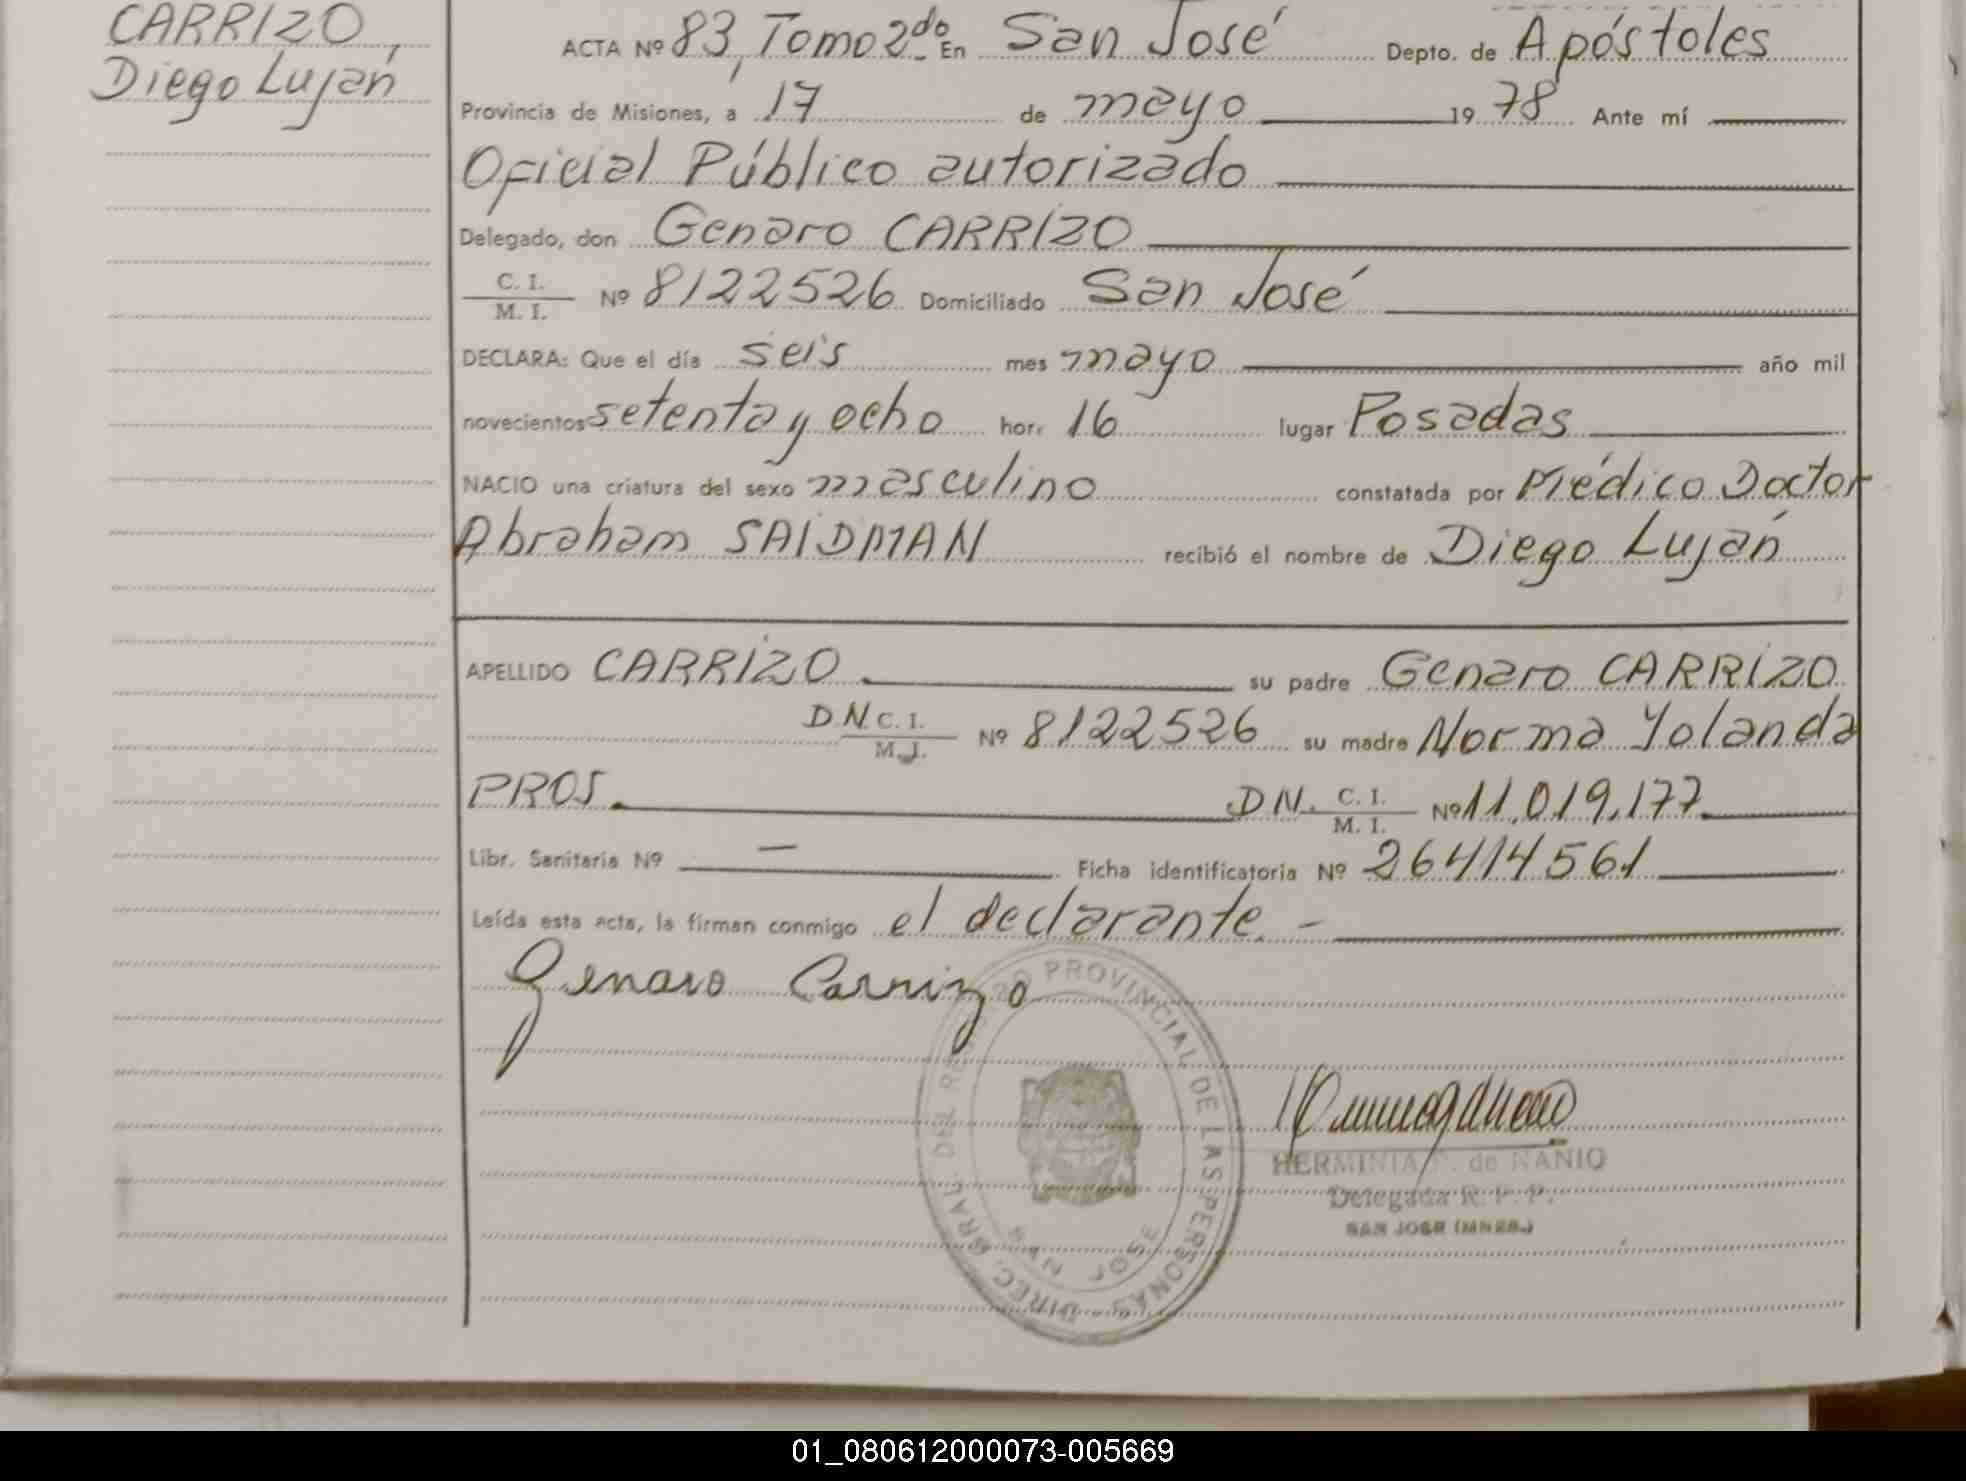 CARRIZO,
Diego Luján
ACTA Nº 83, Tomo 2do En San José Depto. de Apóstoles
Provincia de Misiones, a 17 de mayo 19 78 Ante mí
Oficial Público autorizado
Delegado, don Genaro CARRIZO
C. I.
M. I. Nº 8122526 Domiciliado San José
DECLARA: Que el día seis mes mayo año mil
novecientos setenta y ocho hora 16 lugar Posadas
NACIO una criatura del sexo masculino constatada por Médico Doctor
Abraham SAIDMAN recibió el nombre de Diego Luján
APELLIDO CARRIZO su padre Genaro CARRIZO
D.N. C. I.
M. I. Nº 8122526 su madre Norma Yolanda
PROS. D N. C. I.
M. I. Nº 11.019.177
Libr. Sanitaria Nº — Ficha identificatoria Nº 26414561
Leída esta acta, la firman conmigo el declarante. -
Genaro Carrizo
DIREC. GRAL. DEL REGISTRO PROVINCIAL DE LAS PERSONAS
SAN JOSE
HERMINIA de NANIO
Delegada R. P. P.
SAN JOSE (MNES.)
01_080612000073-005669